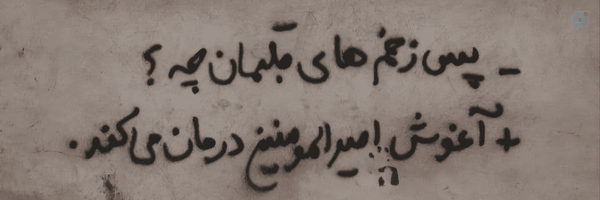 _ پس زخم های قلبمان چه ؟
+ آغوش امیرالمومنین درمان می کند .